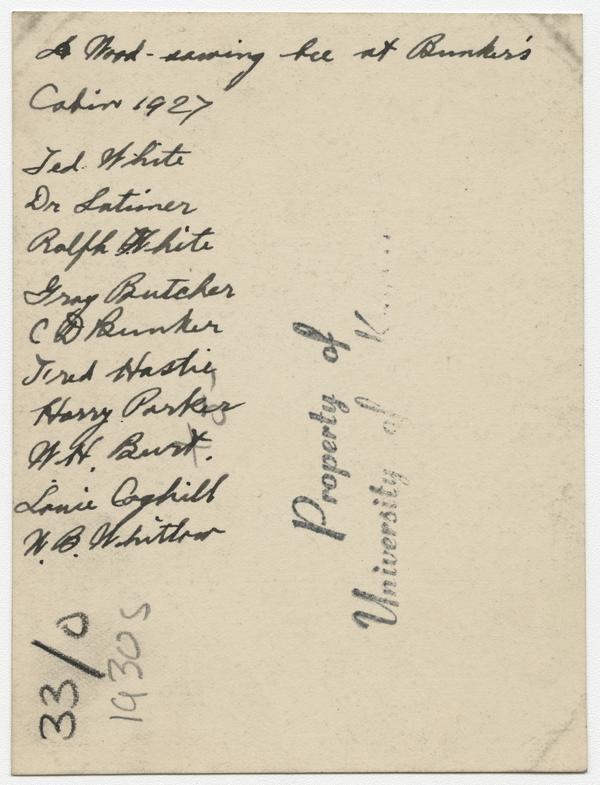 A Wood-sawing bee at Bunker's
Cabin 1927
Ted White
Dr Latimer
Ralph White
Gray Butcher
C D Bunker
Fred Hastie
Harry Parker
W.H. Burt.
Louie Coghill
W.B. Whitlow
Property of
University of
33/0
1930s